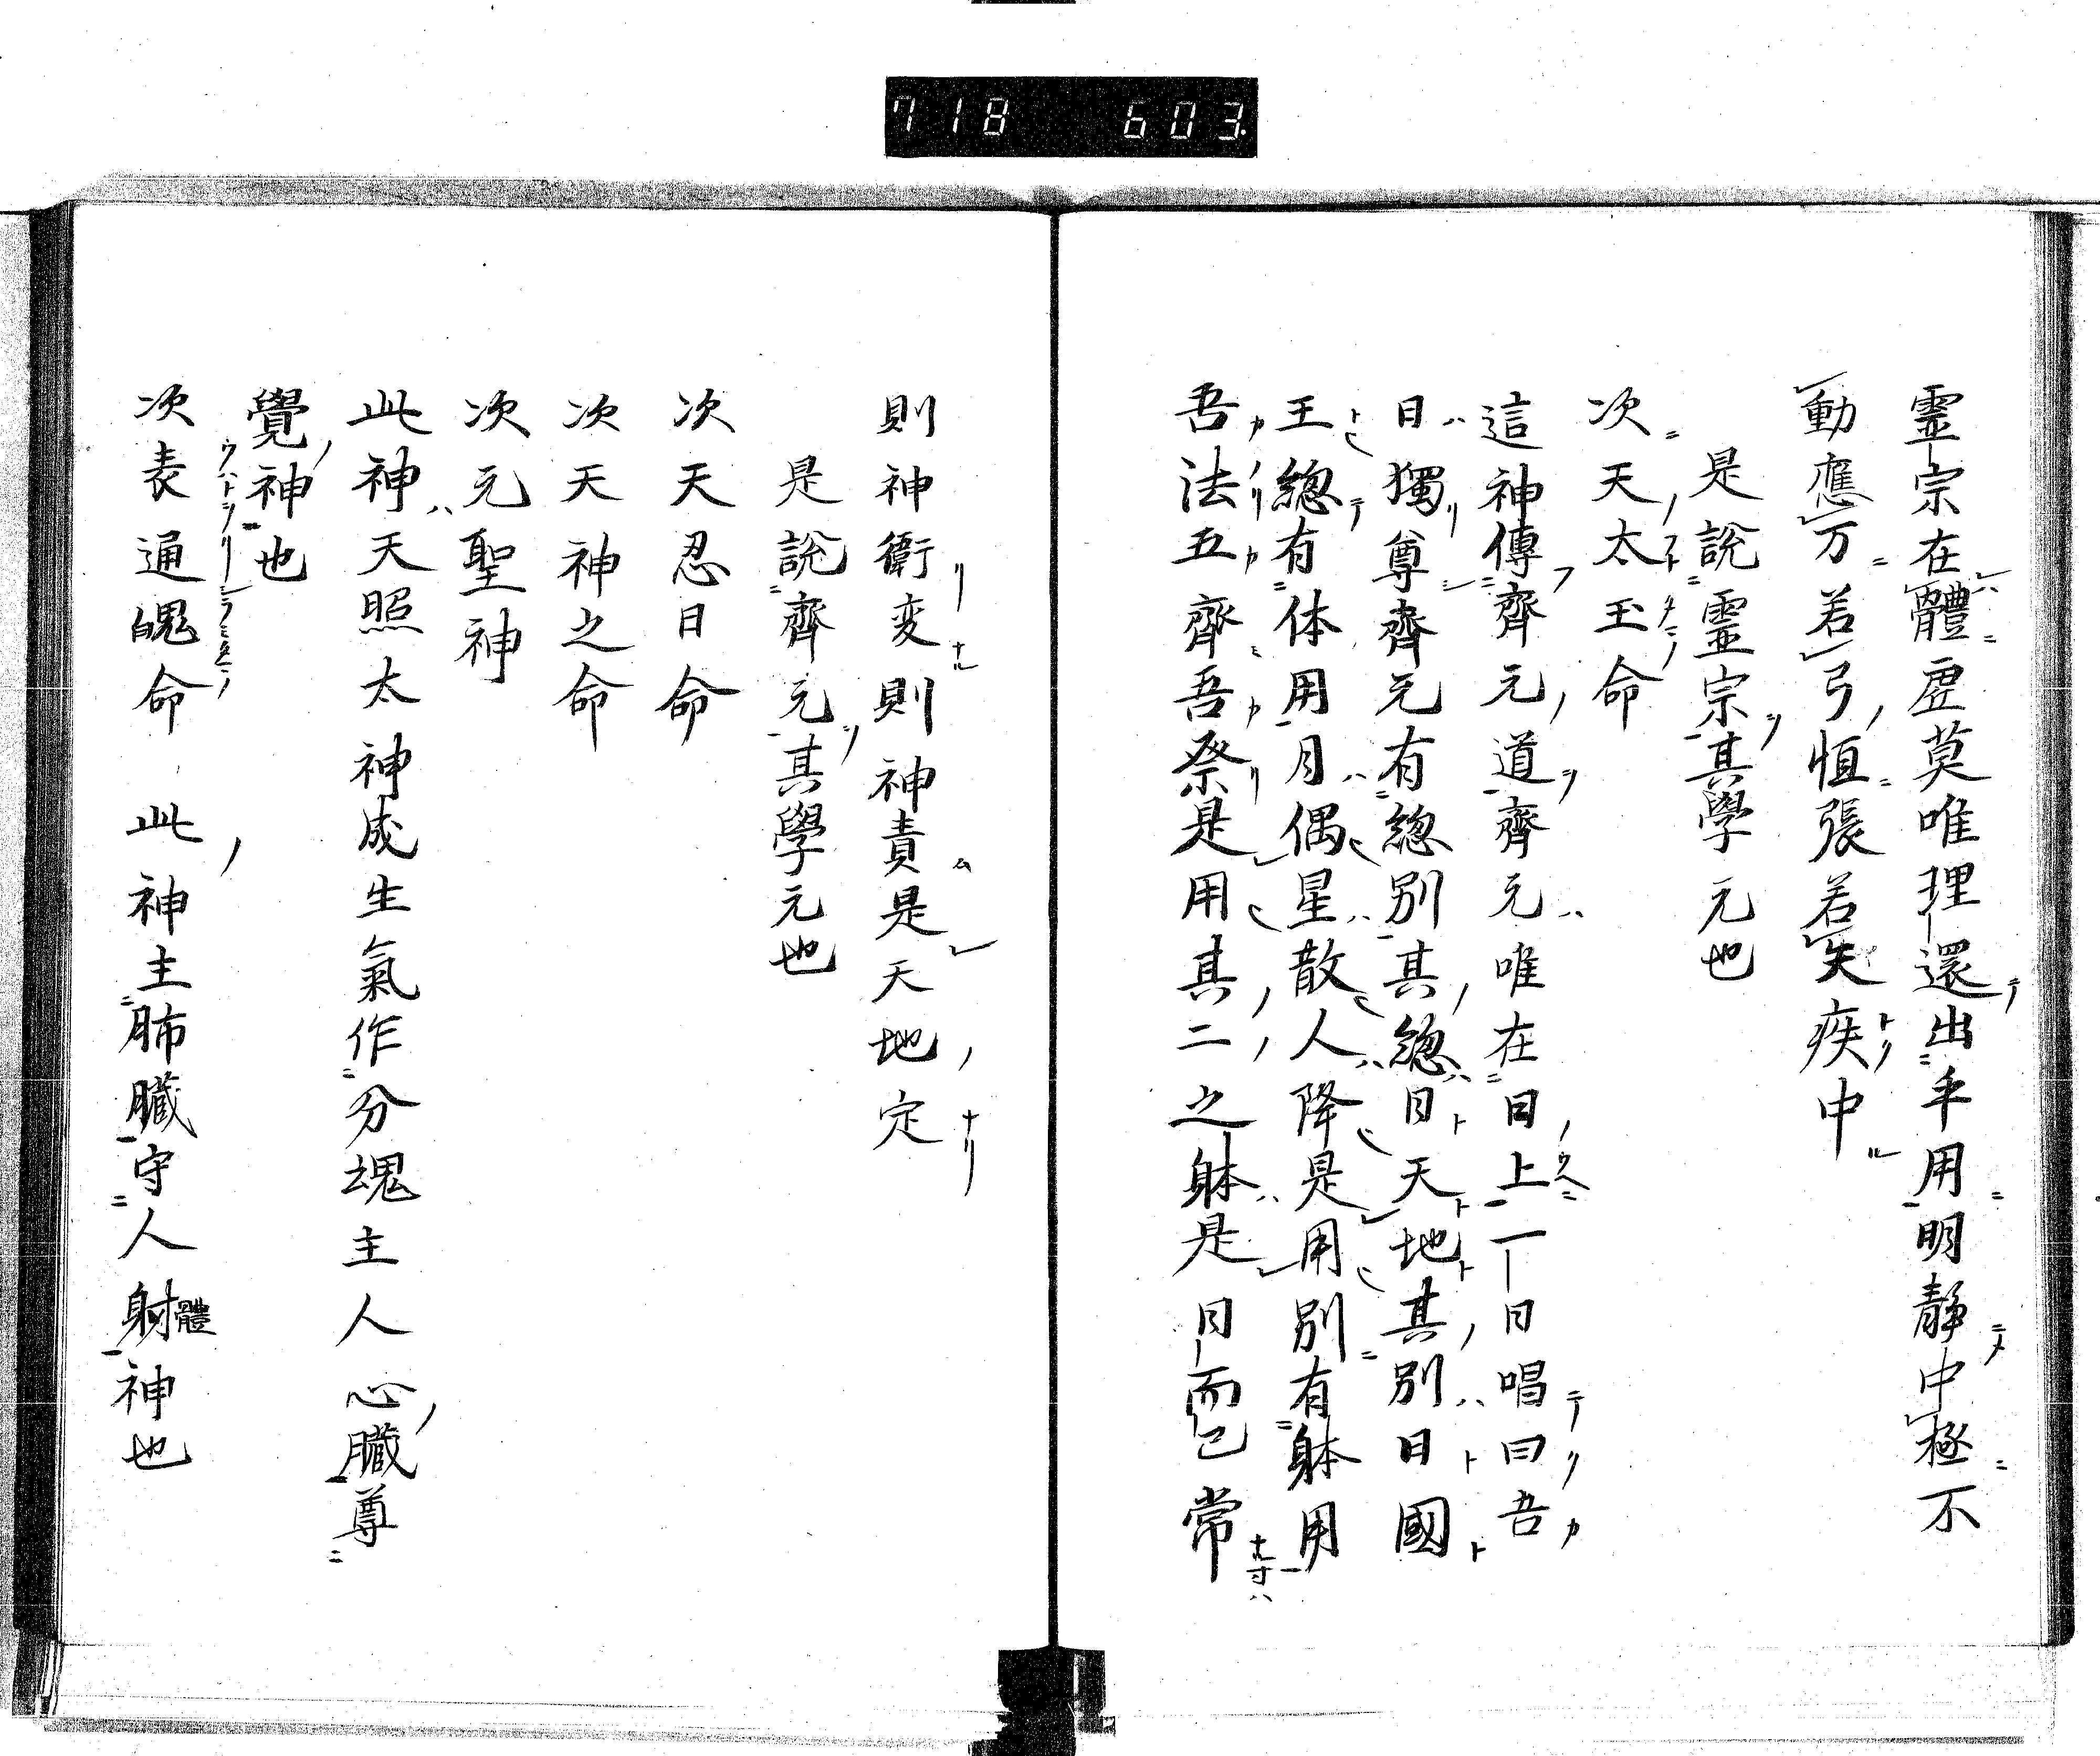 718 603
霊宗在體虚莫唯理還出乎用明靜中極不
動應万若弓恒張若矢疾中
是說霊宗其學元也
次天太玉命
這神傳齊元道齊元唯在日上一日唱曰吾
日獨尊齊元有総別其総日天地其別日國
王総有体用月偶星散人降是用別有躰用
吾法五齊吾祭是用其二之躰是日而已常
則神衛変則神責是天地定
是說齊元其學元也
次天忍日命
次天神之命
次元聖神
此神天照太神成生氣作分魂主人心臓尊
覺神也
次表通魄命 此神主肺臓守人射體神也